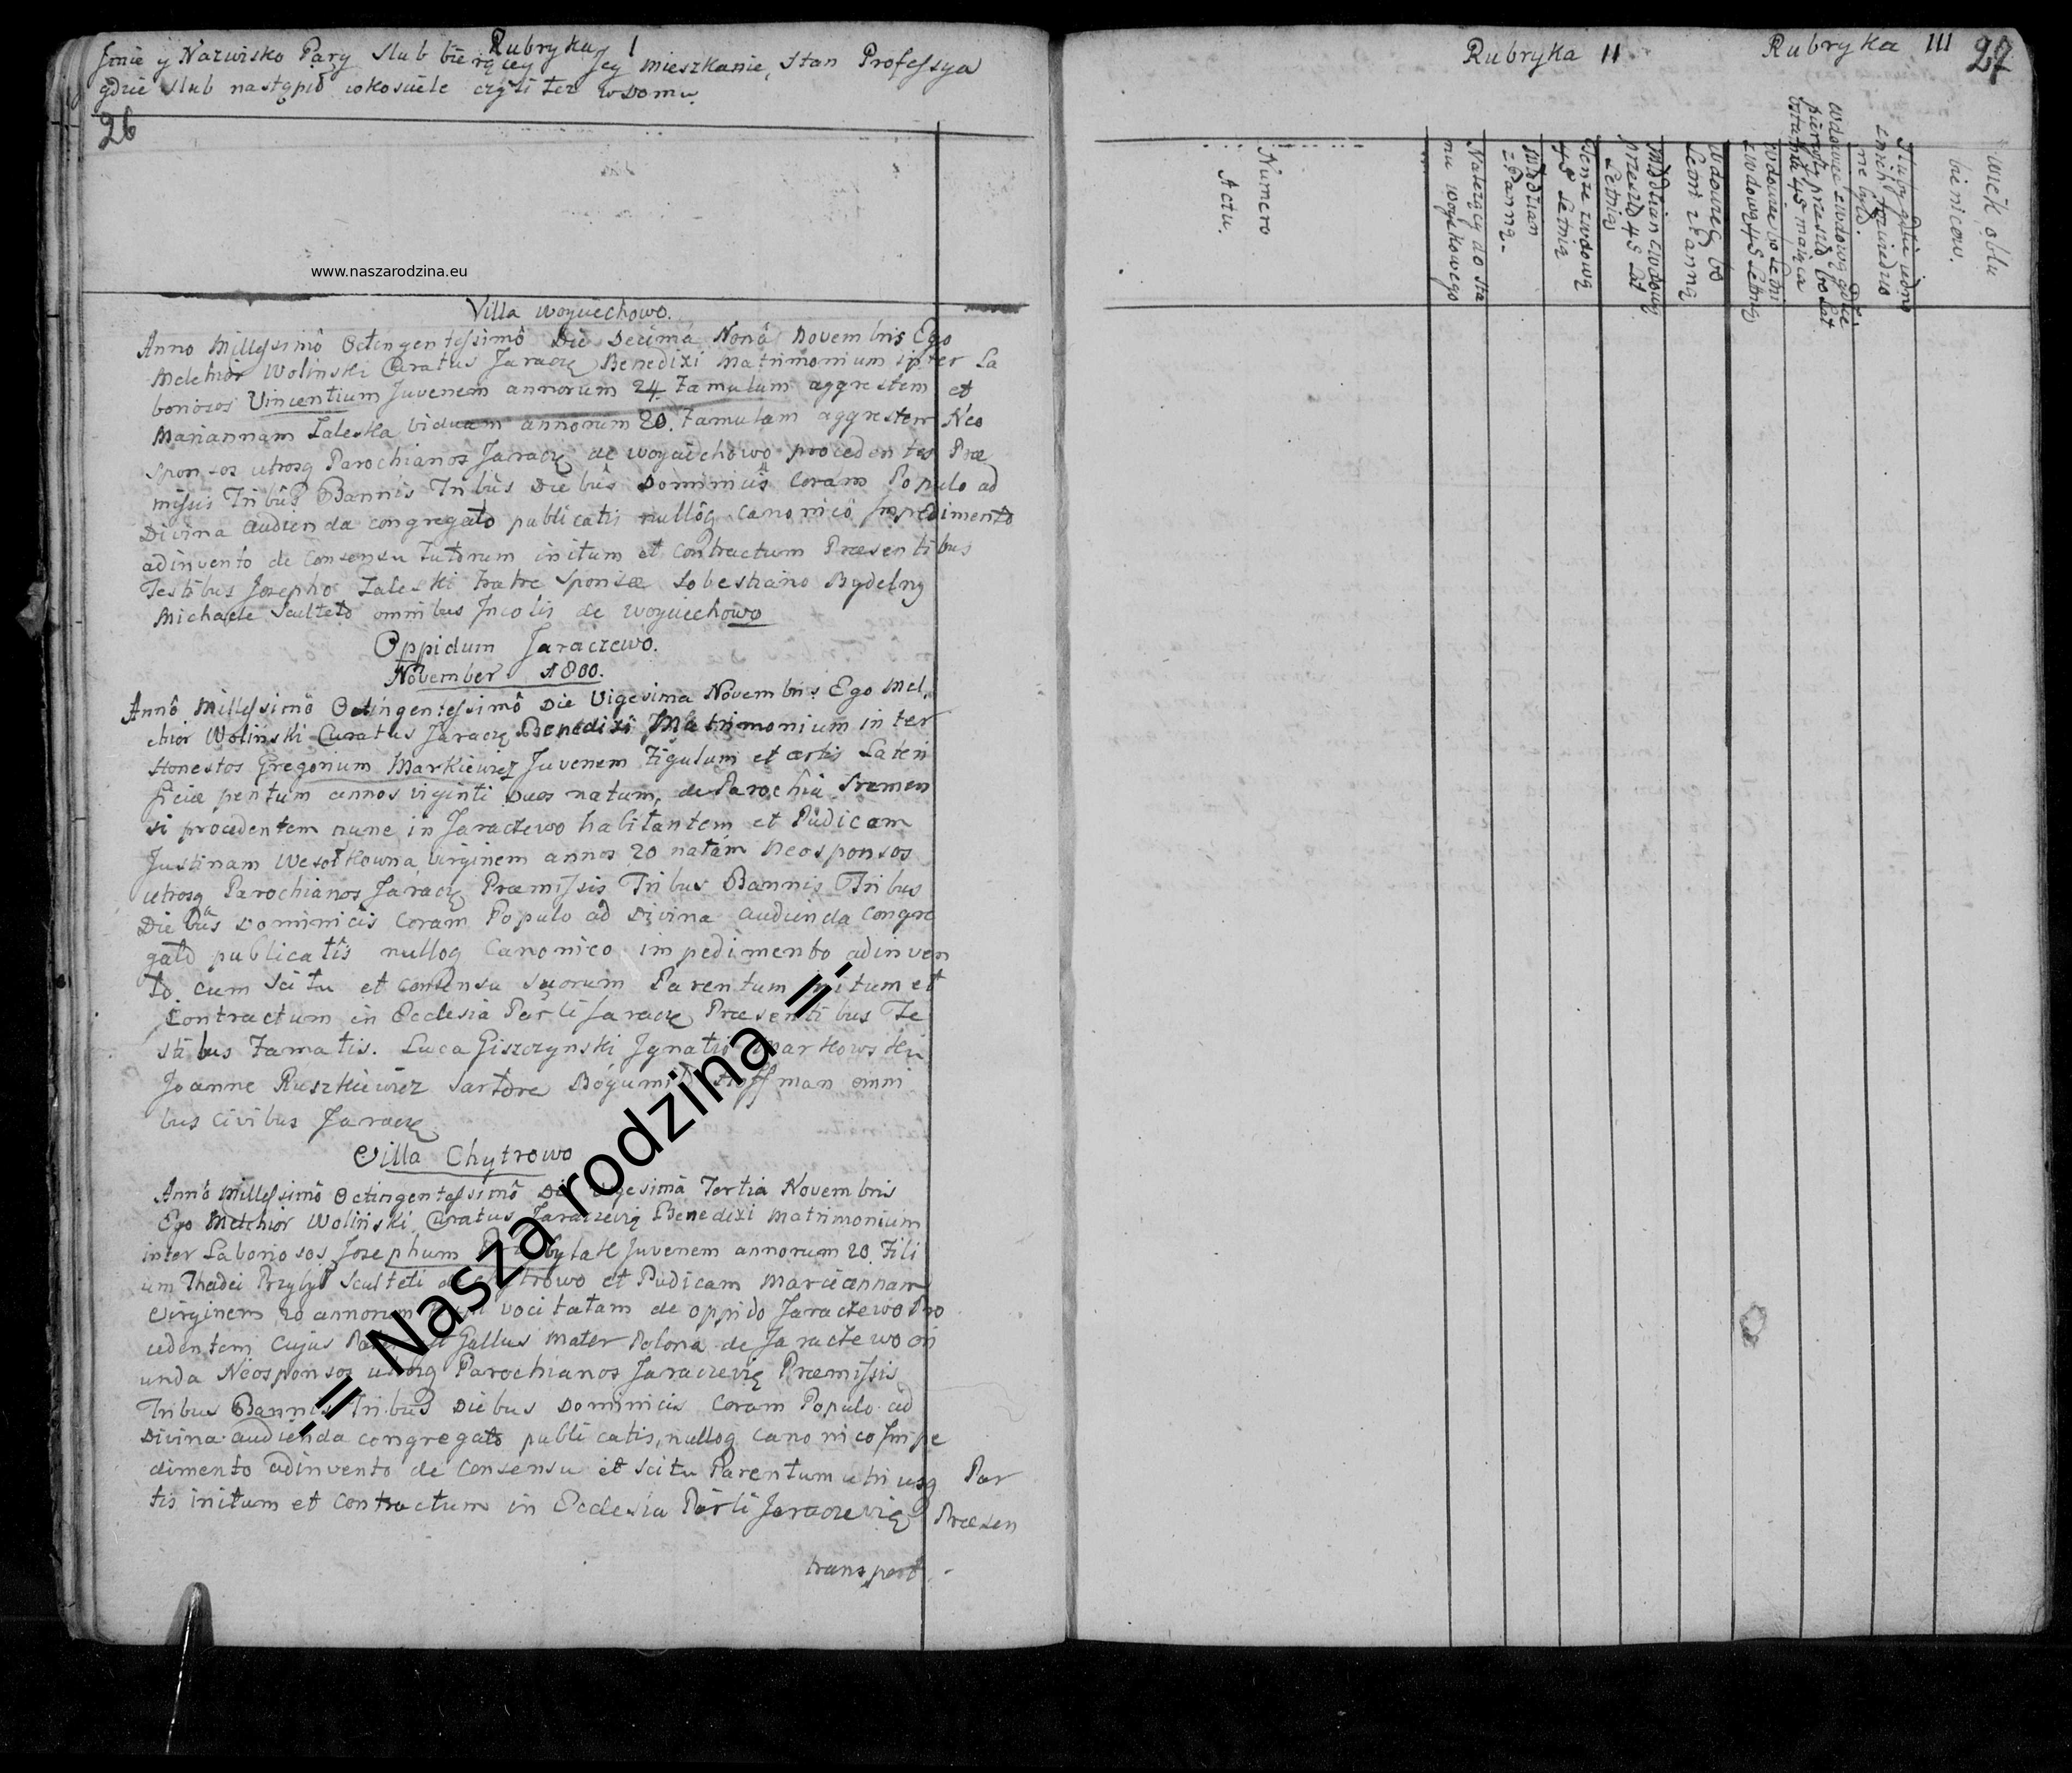 Rubryka I
Jmie y Nazwisko Pary Slub bierącey Jey mieszkanie, Stan Professya
gdzie slub nastąpił wkosciele czyli tez wdomu.
26
www.naszarodzina.eu
Villa Woyciechowo.
Anno Millessimô Octingentessimô Die Decima Nonâ Novembris Ego
Melchior Wolinski Curatus Jaracz Benedixi Matrimonium inter La
boriosos Vincentium Juvenem annorum 24. Famulum aggrestem et
Mariannam Zaleska viduam annorum 20. Famulam aggrestem Neo
sponsos utrosq Parochianos Jaracz de Woyciechowo procedentes Præ
missis Tribus Bannis Tribus Diebus Dominicis Coram Populo ad
Divina audienda congregato publicatis nullôq Canonicô Impedimento
adinvento de Consensu Tutorum initum et Contractum Præsentibus
Testibus Josepho Zaleski Fratre Sponsæ Sobestiano
Michaele Sculteto omnibus Incolis de Woyciechowo
Oppidum Jaraczewo.
November 1800.
Annô Millessimô Octingentessimô Die Vigesima Novembris Ego Mel
chior Wolinski Curatus Jaracz Benedixi Matrimonium inter
Honestos Gregorium Markiewicz Juvenem Figulum et artis Lateri
ficiæ peritum annos viginti Duos natum, de Parochia Sremen
si procedentem nunc in Jaraczewo habitantem et Pudicam
Justinam Wesołkowna virginem annos 20 natam Neosponsos
utrosq Parochianos Jaracz Præmissis Tribus Bannis Tribus
Diebus Dominicis Coram Populo ad Divina audienda Congre
gato publicatis nulloq Canonico impedimento adinven
to. Cum Scitu et Consensu Suorum Parentum initum et
Contractum in Ecclesia Parli Jaracz Præsentibus Te
stibus Famatis. Luca Giszczynski Jgnatio Markowski
Joanne Ruszkiewicz Sartore Bogumił Hoffman omni
bus Civibus Jaracz
Villa Chytrowo
Annô Millessimô Octingentessimô Die Vigesimâ Tertia Novembris
Ego Melchior Wolinski Curatus Jaraczevię Benedixi Matrimonium
inter Laboriosos Josephum Juvenem annorum 20 Fili
um Thadei Przybył Sculteti de Chytrowo et Pudicam Mariannam
Virginem 20 annorum vocitatam de oppido Jaraczewo Pro
cedentem Cujus Pater est Gallus Mater Polona de Jaraczewo ori
unda Neosponsos utrosq Parochianos Jaraczevię Præmissis
Tribus Bannis Tribus Diebus Dominicis Coram Populo ad
Divina audienda congregato publicatis, nulloq Canonico Impe
dimento adinvento de Consensu et scitu Parentum utriusq Par
tis initum et Contractum in Ecclesia Parli Jaraczevię Præsen
transport
-= Nasza rodzina =-
Rubryka II
Rubryka III
27
Numero
Actu.
Należący do sta
nu woyskowego
Młodzian
z Panną
tenze z wdową
45 Letnią
Młodzian z wdową
przeszło 45 Lat
Letnią
Wdowiec 60
Letni z Panną
Wdowiec 60 Letni
z wdową 45 Letnią
Wdowiec z wdową gdzie
pierwszy przeszło 60 Lat
ostatnia 45 mająca
Sluby gdzie iedno
z nich
ne było.
Wiek oblu
bienicow.